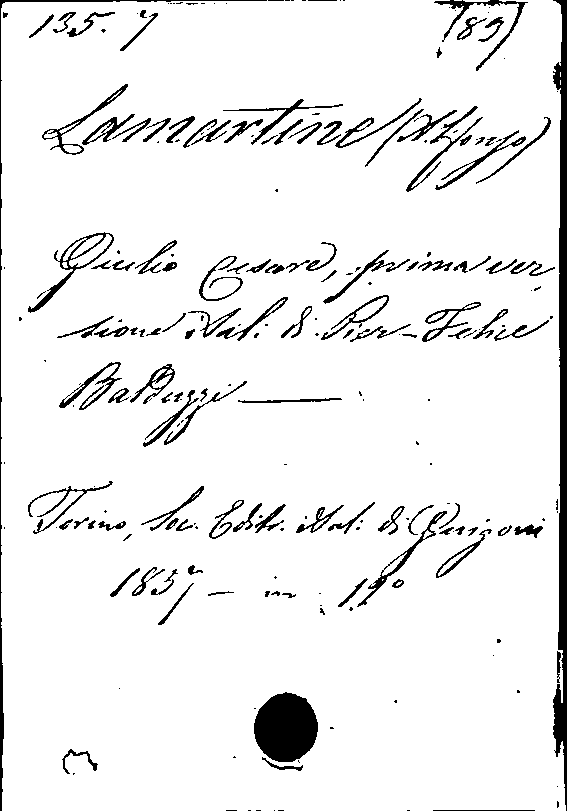 135. 7 (89)
Lamartine (Alfonso)
Giulio Cesare, prima ver
sione ital: di Pier-Felice
Balduzzi ———
Torino, Soc. Editr. ital: di Guigoni
1857 — in 12º